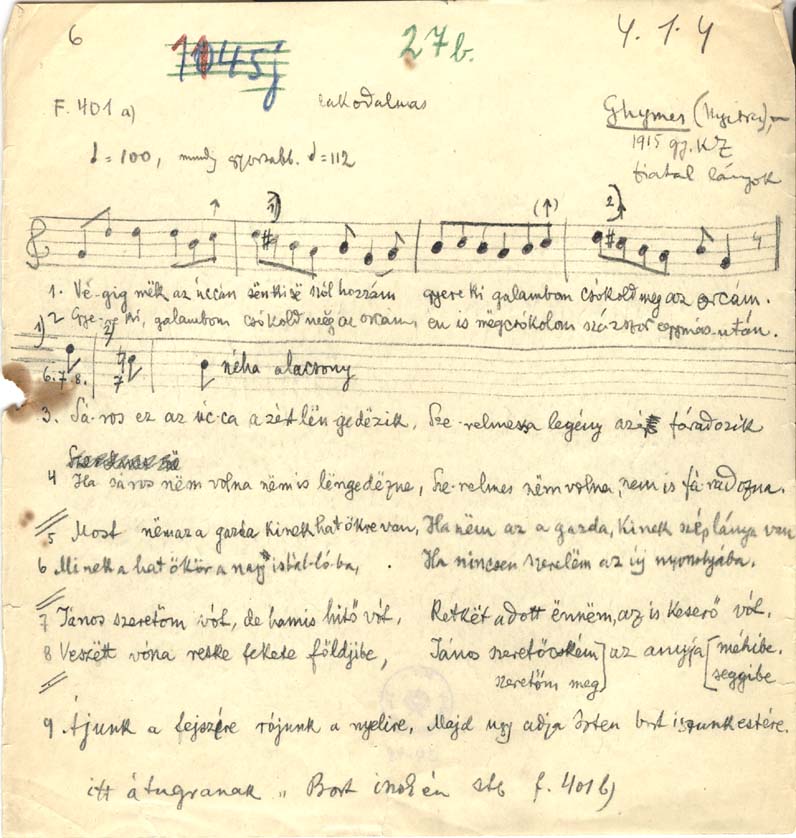 6
1045j
27 b.
4. 1. 4
F. 401 a)
lakodalmas
Ghymes (Nyitra),
1915 gy. KZ
fiatal lányok
♩ = 100, mindig gyorsabb. ♩ = 112
1)
(↑)
2)
1. Vé-gig mék az úccán sënki së szól hozzám gyere ki galambom csókold meg az orcám.
2 Gye-re ki, galambom csókold meg az orcám, én is mëgcsókolom százszor egymás-után.
1)
2)
6. 7. 8.
7
néha alacsony
3. Sá-ros ez az úc-ca azétt lën-gedëzik, Sze-relmes a legény azé fáradozik
4 Ha sáros nëm volna nëm is lëngedëzne, Sze-relmes nëm volna, nem is fá-radozna.
5 Most nëm az a gazda kinek hat ökre van, Ha nëm az a gazda, kinek szép lánya van
6 Minek a hat ökör a nagy istál-ló-ba, Ha nincsen szerelëm az új nyoszolyába.
7 János szeretőm vót, de hamis hitő vót, Retkët adott ënnëm, az is keserő vót.
8 Veszëtt vóna retke fekete földjibe, János szeretőcském az anyja méhibe.
szeretőm meg seggibe
9 Ájunk a fejszére rójunk a nyelire, Majd ugy adja Isten bort iszunk estére.
itt átugranak „ Bort iszok én stb f. 401 b)